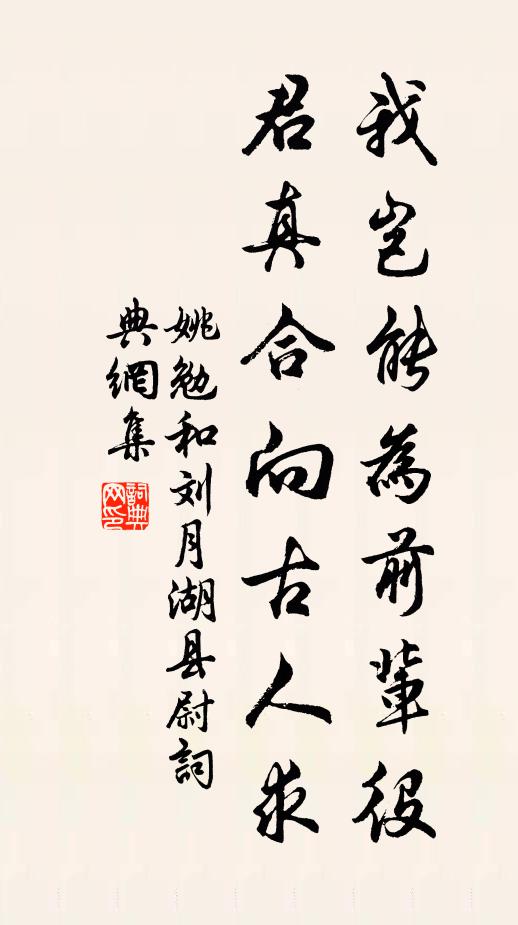 我岂能為前輩役
君真合向古人求
姚勉和刘月湖县尉詞
典網集
詞典
网印